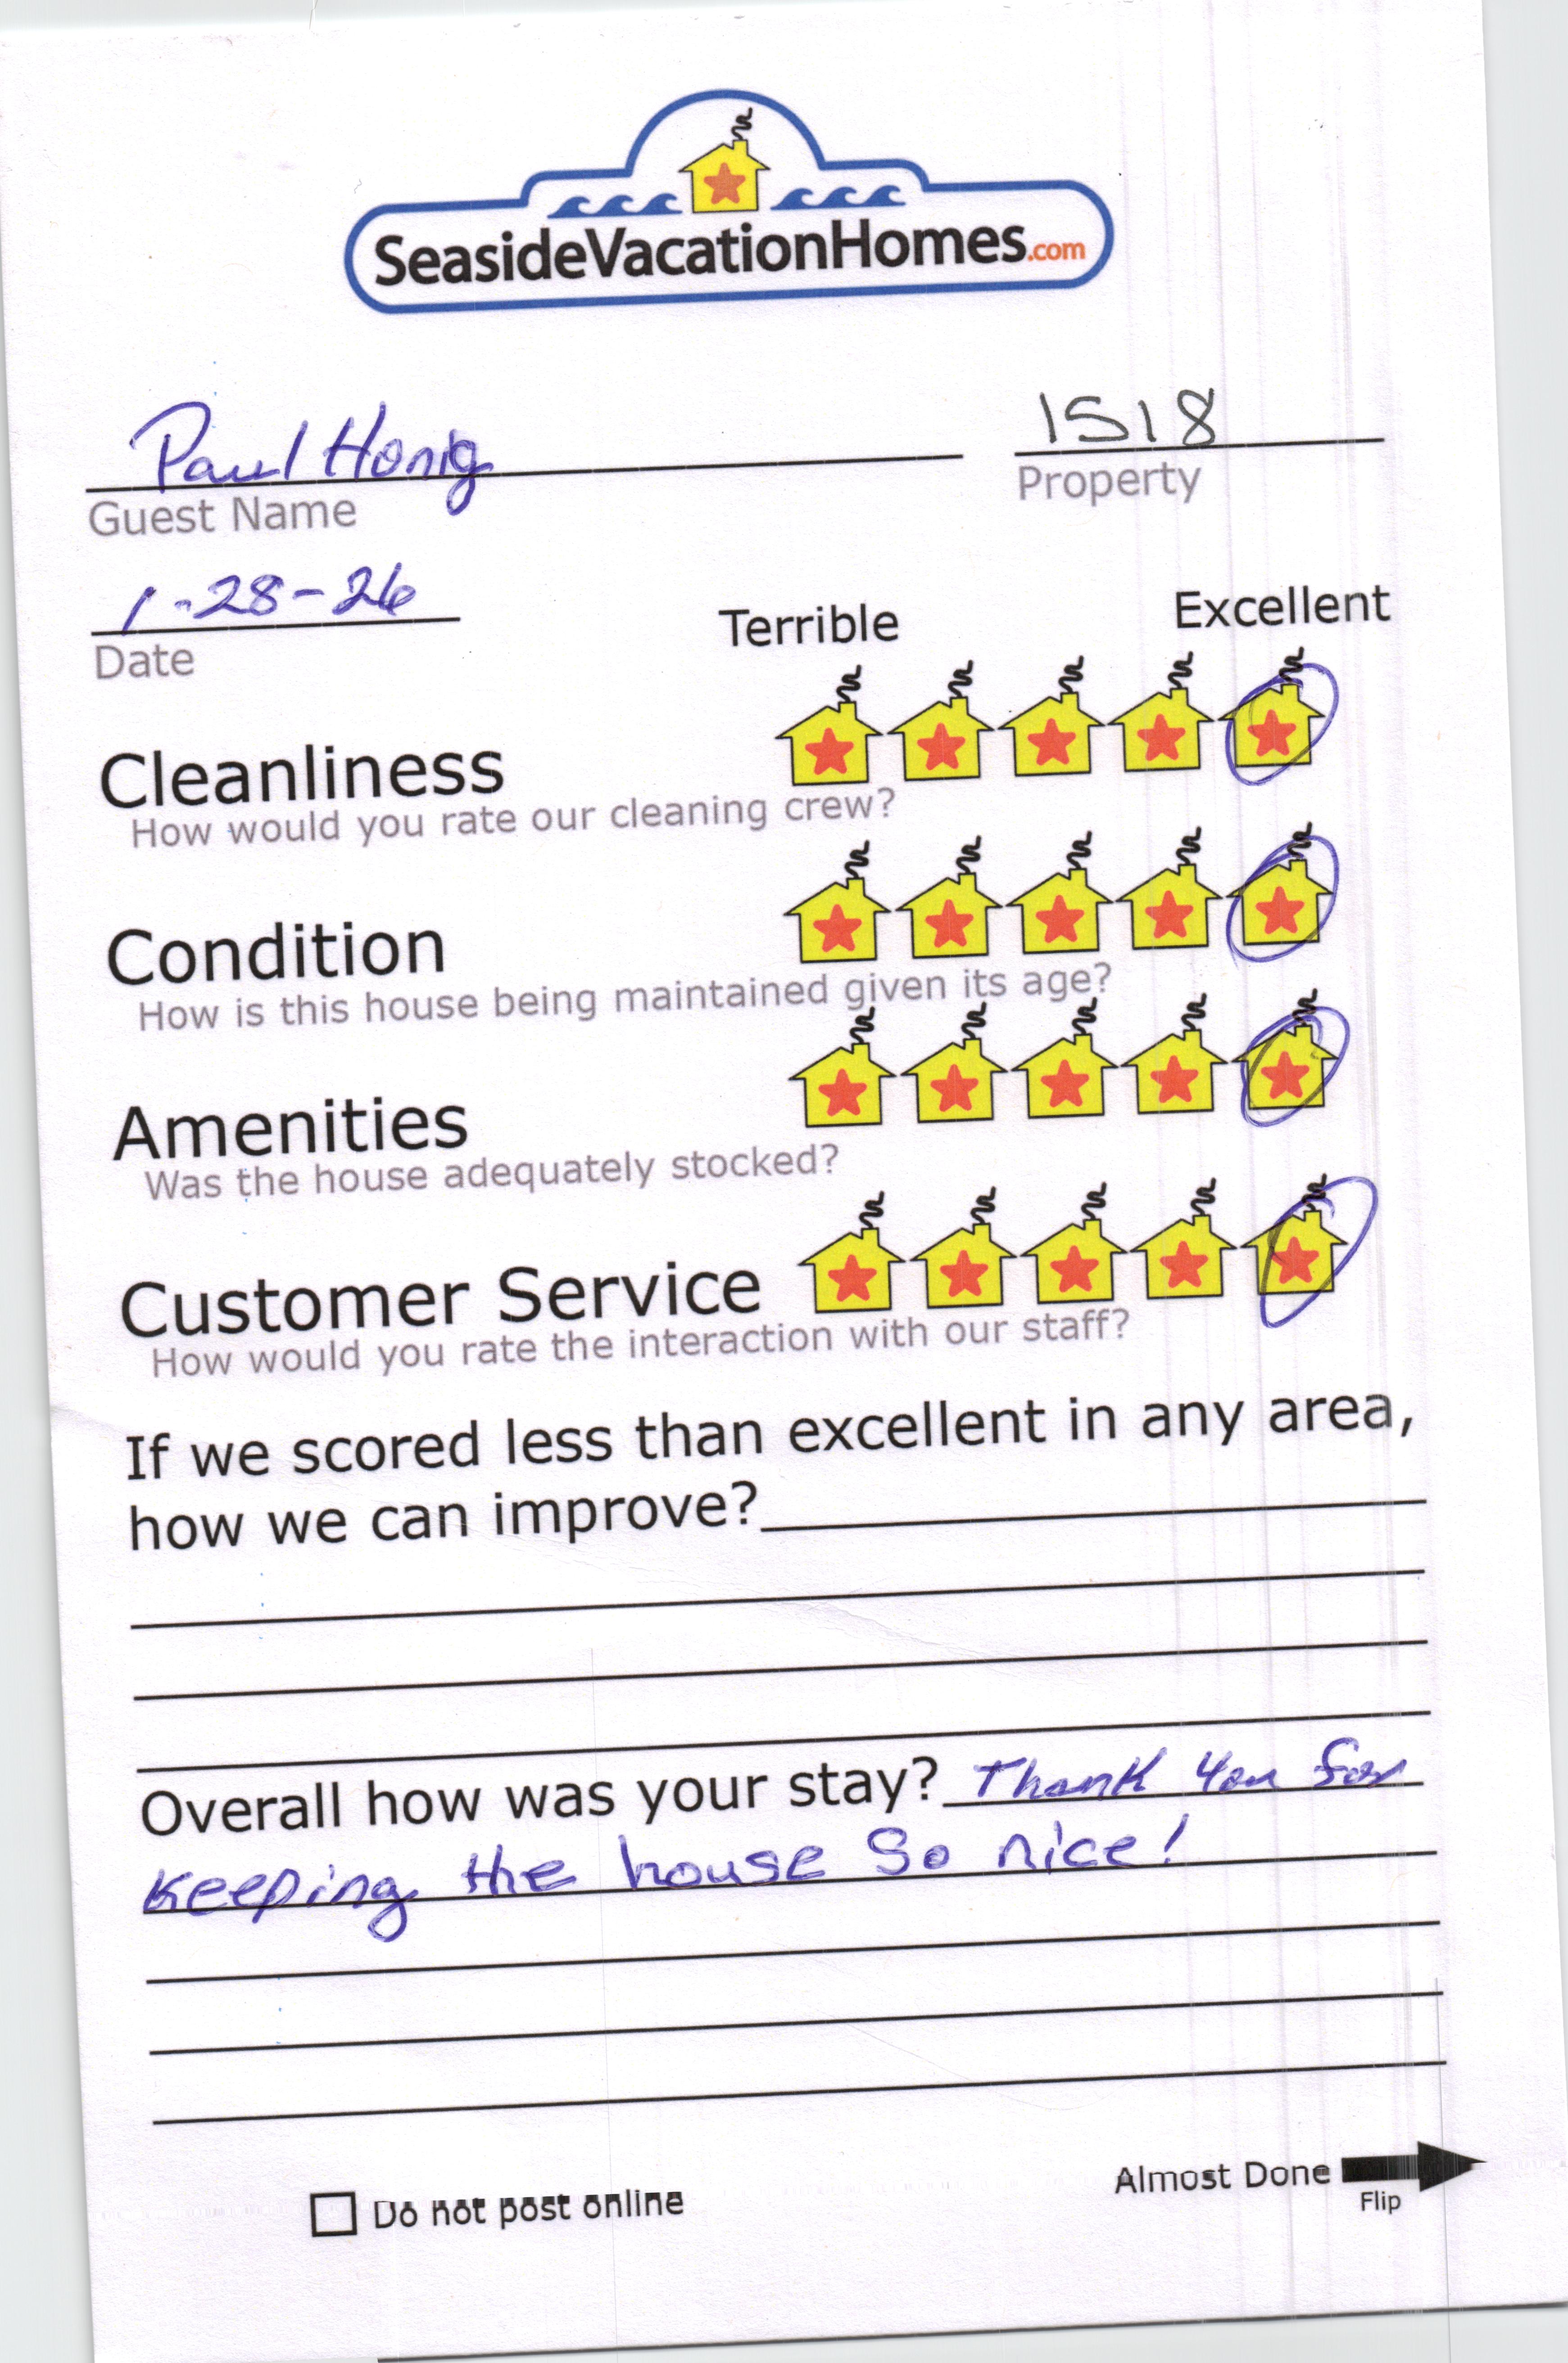 SeasideVacationHomes.com
Paul Honig 1518
Guest Name Property
1-28-26
Date
Terrible Excellent
Cleanliness
How would you rate our cleaning crew?
Condition
How is this house being maintained given its age?
Amenities
Was the house adequately stocked?
Customer Service
How would you rate the interaction with our staff?
If we scored less than excellent in any area,
how we can improve?
Overall how was your stay? Thank you for
Keeping the house so nice!
Do not post online
Almost Done
Flip